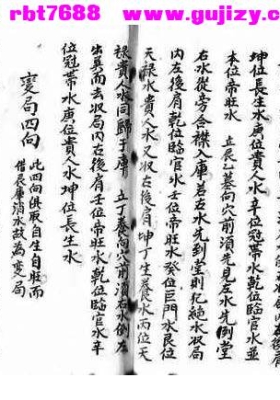 rbt7688 www.gujizy.c
坤位長生水庚位貴人水辛位冠帶水乾位臨官水並
本位帝旺水 立辰墓向穴前須先見左水先倒堂
右水從旁合襟入庫若右水先到堂則犯絕水收局
内左後肩乾位臨官水壬位帝旺水癸位巨門水艮位
天祿水貴人水又收右後肩坤丁生養水丙位天
祿貴人水同歸于庫 立丁養向穴前須右水倒左
出巽而去收局内左後肩有壬位帝旺水乾位臨官水辛
位冠帶水庚位貴人水坤位長生水
變局四向
此四向俱取自生自旺而
借庫消水故為變局